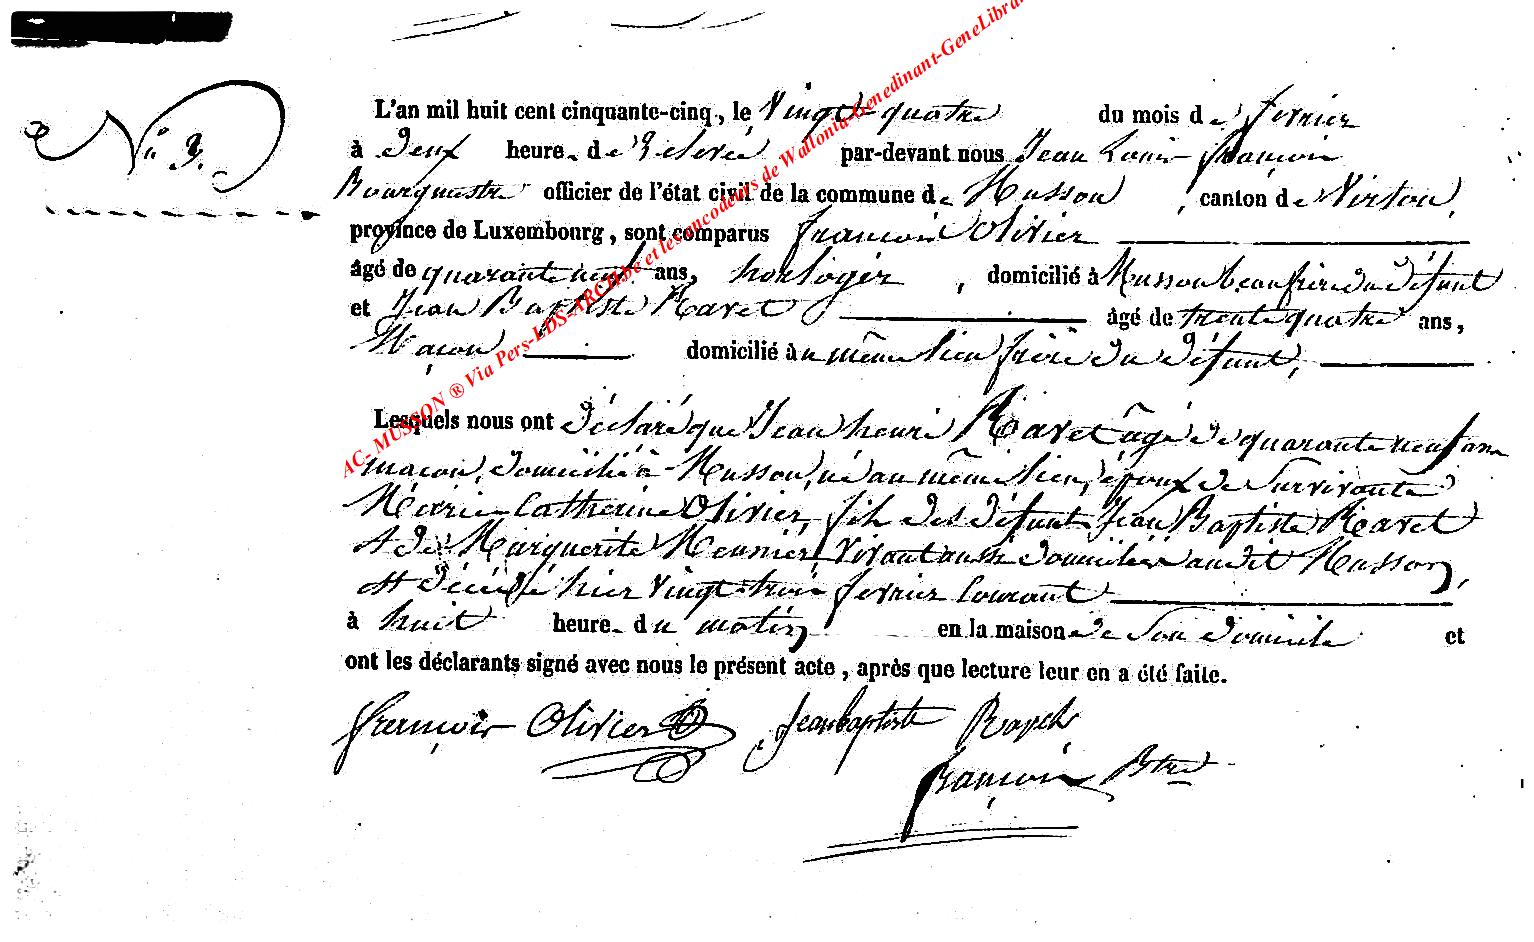 N° 3.
L'an mil huit cent cinquante-cinq, le Vingt-quatre du mois de fevrier
à deux heure. de Relevée par-devant nous Jean Louis françois
Bourgmestre officier de l'état civil de la commune de Musson, canton de Virton,
province de Luxembourg, sont comparus françois Olivier
âgé de quarante neuf ans, horloger, domicilié à Musson beau frère du défunt
et Jean Baptiste Ravet âgé de trente quatre ans,
Maçon domicilié au même lieu frère du défunt,
Lesquels nous ont déclaré que Jean henri Ravet âgé de quarante neuf ans
maçon, domicilié à Musson, né au même lieu, époux de Survivante
Marie Catherine Olivier, fils des défunts Jean Baptiste Ravet
et de Marguerite Meunier, vivant aussi domiciliés audit Musson,
est décédé hier vingt-trois fevrier Courant
à huit heure. du matin en la maison de Son domicile et
ont les déclarants signé avec nous le présent acte, après que lecture leur en a été faite.
françois Olivier Jean baptiste
françois Btre
AC- MUSSON ® Via Pers-LDS-ARCH.be et les encodeurs de Wallonia-Genedinant-GeneLibra